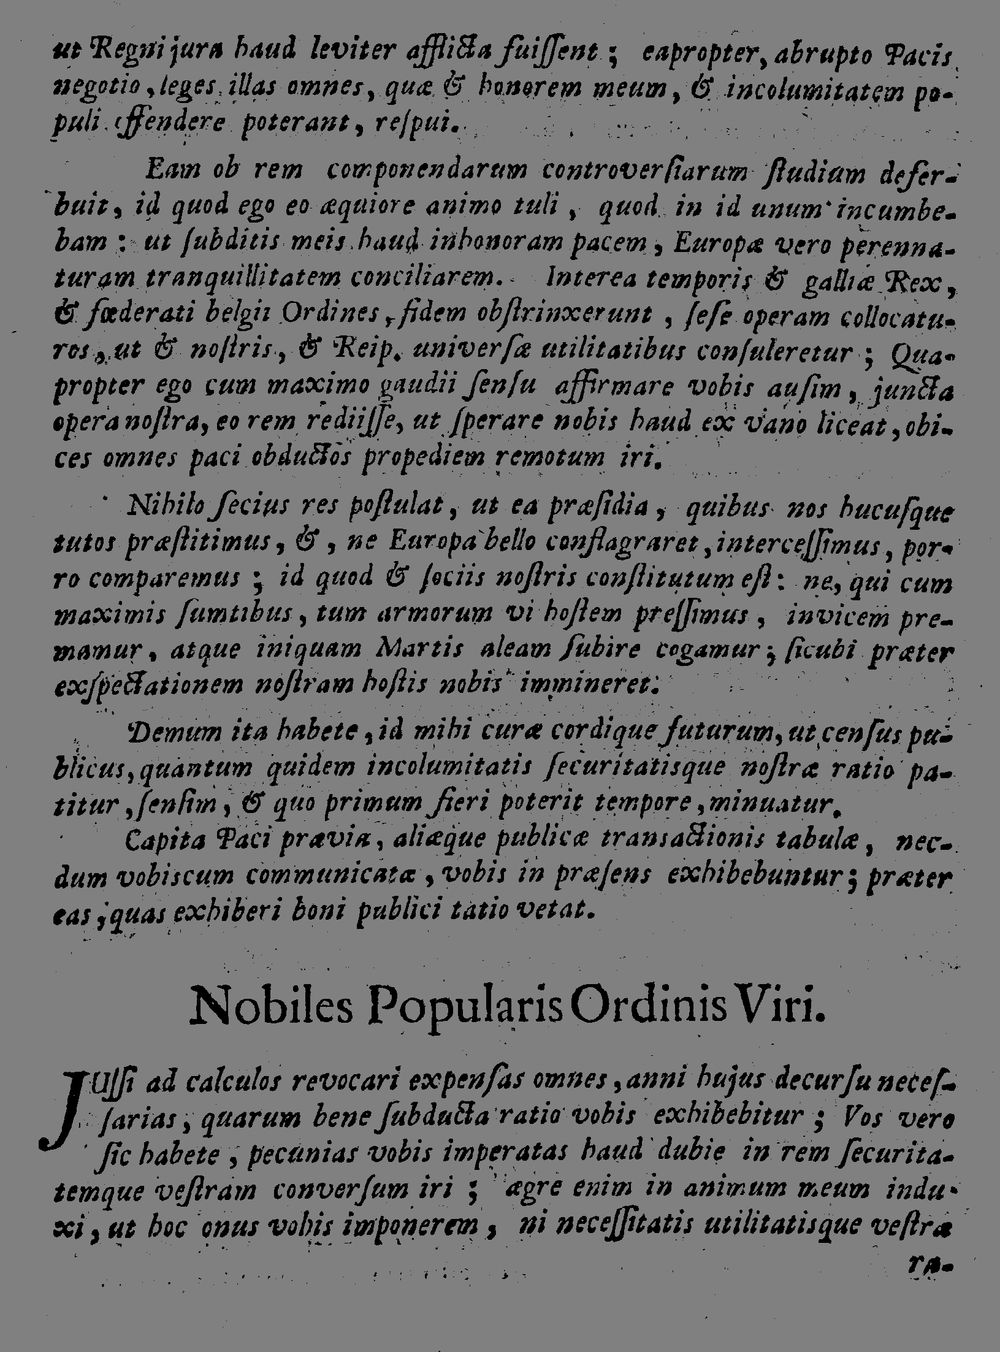 ut Regni jura haud leviter afflicta fuiſſent ; eapropter, abrupto Pacis
negotio, leges illas omnes, quæ & honorem meum, & incolumitatem po-
puli offendere poterant, reſpui.
Eam ob rem componendarum controverſiarum ſtudium defer-
buit, id quod ego eo æquiore animo tuli , quod in id unum incumbe-
bam : ut ſubditis meis haud inhonoram pacem, Europæ vero perenna-
turam tranquillitatem conciliarem. Interea temporis & galliæ Rex,
& fœderati belgii Ordines, fidem obſtrinxerunt , ſeſe operam collocatu-
ros, ut & noſtris, & Reip. univerſæ utilitatibus conſuleretur ; Qua-
propter ego cum maximo gaudii ſenſu affirmare vobis auſim, juncta
opera noſtra, eo rem rediiſſe, ut ſperare nobis haud ex vano liceat, obi-
ces omnes paci obductos propediem remotum iri.
Nihilo ſecius res poſtulat, ut ea præſidia , quibus nos hucuſque
tutos præſtitimus, & , ne Europa bello conflagraret, interceſſimus, por-
ro comparemus ; id quod & ſociis noſtris conſtitutum eſt : ne, qui cum
maximis ſumtibus, tum armorum vi hoſtem preſſimus , invicem pre-
mamur, atque iniquam Martis aleam ſubire cogamur; ſicubi præter
exſpectationem noſtram hoſtis nobis immineret.
Demum ita habete, id mihi curæ cordique futurum, ut cenſus pu-
blicus, quantum quidem incolumitatis ſecuritatisque noſtræ ratio pa-
titur, ſenſim, & quo primum fieri poterit tempore, minuatur.
Capita Paci prævia, aliæque publicæ transactionis tabulæ, nec-
dum vobiscum communicatæ, vobis in præſens exhibebuntur; præter
eas, quas exhiberi boni publici tatio vetat.
Nobiles Popularis Ordinis Viri.
JUſſi ad calculos revocari expenſas omnes, anni hujus decurſu neceſ-
ſarias, quarum bene ſubducta ratio vobis exhibebitur ; Vos vero
ſic habete , pecunias vobis imperatas haud dubie in rem ſecurita-
temque veſtram converſum iri ; ægre enim in animum meum indu-
xi, ut hoc onus vobis imponerem , ni neceſſitatis utilitatisque veſtræ
ra-